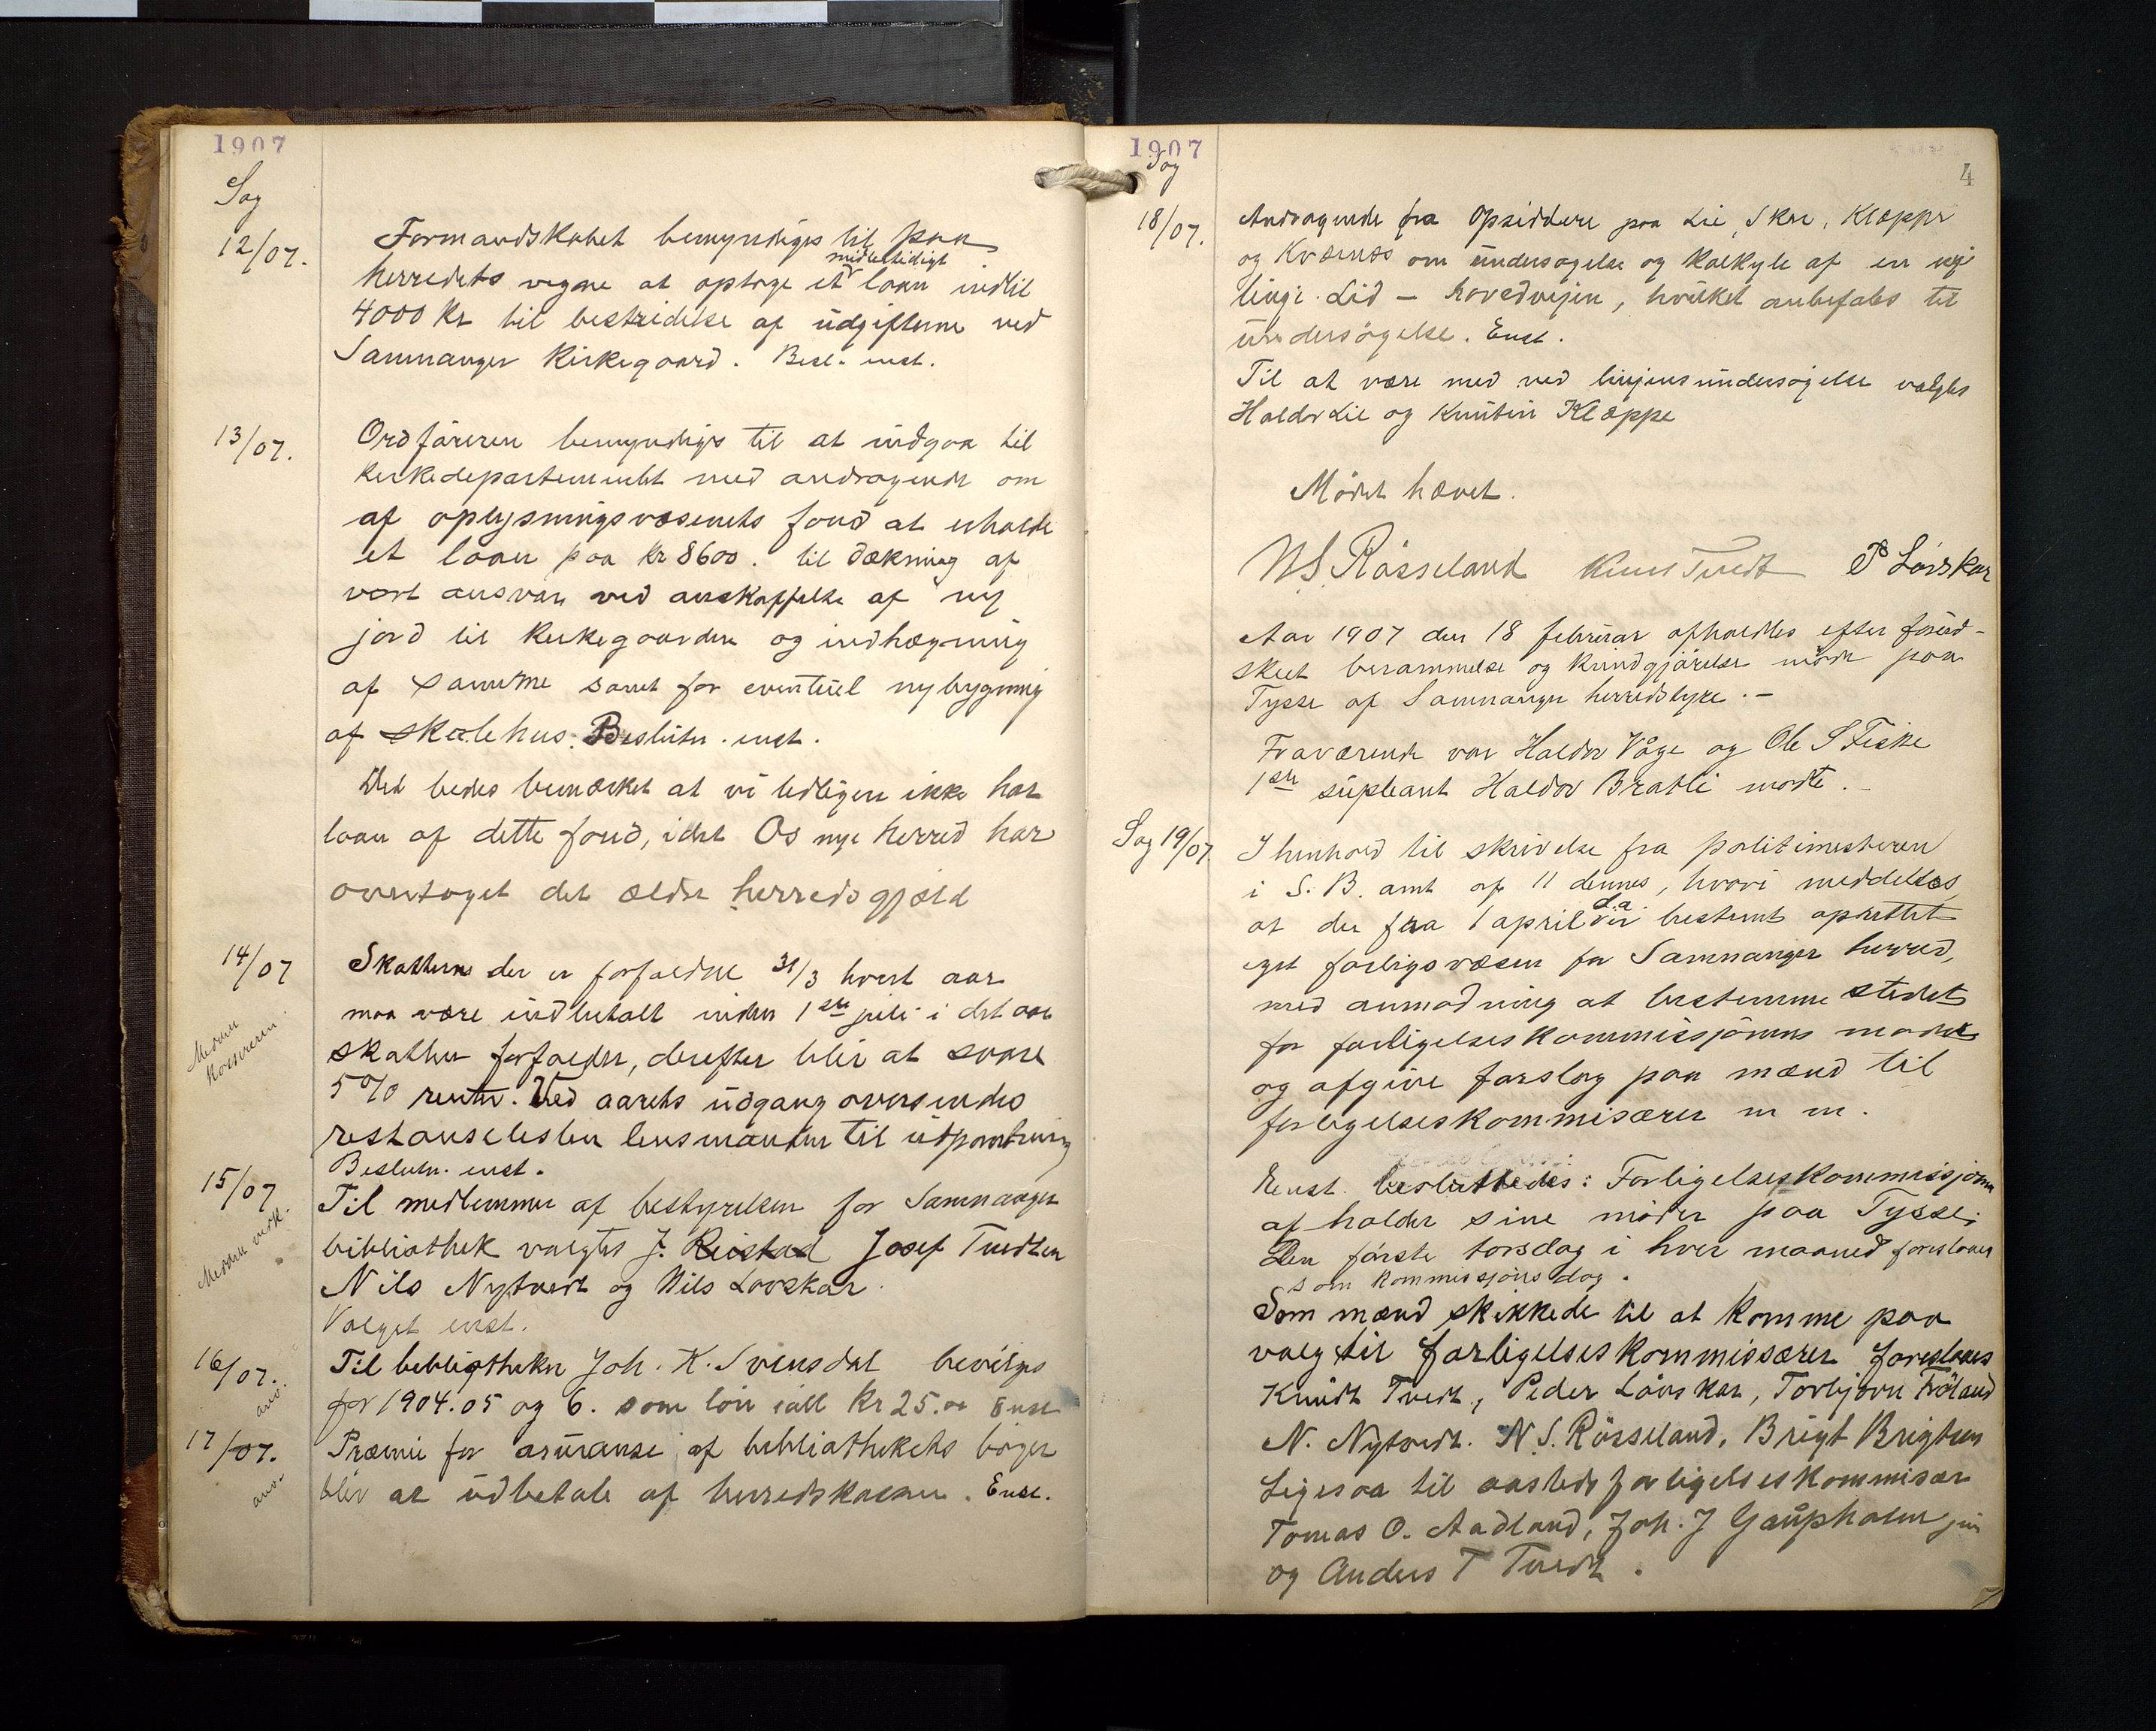 1907
Sag
12/07.
Formandskabet bemyndiges til paa
midlertidigt
herredets vegne at optage et laan indtil
4000 kr til bestridelse af udgifterne ved
Samnanger Kirkegaard. Besl. enst.
13/07.
Ordføreren bemyndiges til at indgaa til
kirkedepartementet med andragende om
af oplysningsvæsenets fond at erholde
et laan paa kr 8600. til dækning af
vort ansvar ved anskaffelse af ny
jord til kirkegaarden og indhægning
af samme samt for eventuel nybygning
af skolehus. Beslutn. enst.
Det bedes bemærket at vi tidligere ikke har
laan af dette fond, idet Os nye herred har
overtaget det ældre herreds gjæld
14/07
Merknn
kasseren.
Skatterne der er forfaldne 31/3 hvert aar
maa være indbetalt inden 1ste juli i det aar
skatten forfalder, derefter blir at svare
5 % renter. Ved aarets udgang oversendes
restanselisten lensmanden til udpantning
Beslutn. enst.
15/07
Til medlemmer af bestyrelsen for Samnanger
bibliothek valgtes J. Reistad Josef Tvedten
Nils Nytvedt og Nils Lovskar.
Valget enst.
16/07.
anv.
Til bibliotheker Joh. K. Svensdal bevilges
for 1904. 05 og 6. som løn ialt Kr 25.00 Enst
17/07.
anv.
Præmie for assuranse af bibliothekets bøger
blir at udbetale af herredskassen. Enst.
1907
Sag
4
18/07.
Andragende fra Opsiddere paa Lie, Skre, Kleppe
og Kvernes om undersøgelse og kalkyle af en vei
linje Lid - hovedvejen, hvilket anbefales til
undersøgelse. Enst.
Til at være med ved linjens undersøgelse valgtes
Haldor Lie og Knut Kleppe
Mødet hævet.
N S. Røsseland Knut Tvedt P Løvskar
Aar 1907 den 18 februar afholdtes efter forud-
skeet berammelse og kundgjørelse møde paa
Tysse af Samnanger herredstyre. -
Fraværende var Haldor Våge og Ole S Fiske
1ste supleant Haldor Bratli mødte. -
Sag 19/07.
I henhold til skrivelse fra politimesteren
i S. B. amt af 11 dennes, hvori meddeltes
d.a.
at der fra 1 april blir bestemt oprettet
eget forligsvæsen for Samnanger herred,
med anmodning at bestemme stedet
for forligelseskommissjonens møder
og afgive forslag paa mænd til
forligelseskommisærer m m.
Enst. besluttedes: Forligelseskommissjonen
afholder sine møder paa Tysse;
Den første torsdag i hver maaned foreslaaes
som kommissjons dag.
Som mænd skikkede til at komme paa
valg til forligelseskommissærer foreslaaes
Knudt Tvedt, Peder Løvskar, Torbjørn Frøland
N. Nytvedt. N. S. Røsseland, Brigt Brigtsen
Ligesaa til aasteds forligelseskommisær
Tomas O. Aadland, Joh. J Gaupholm jun
og Anders T Tvedt.